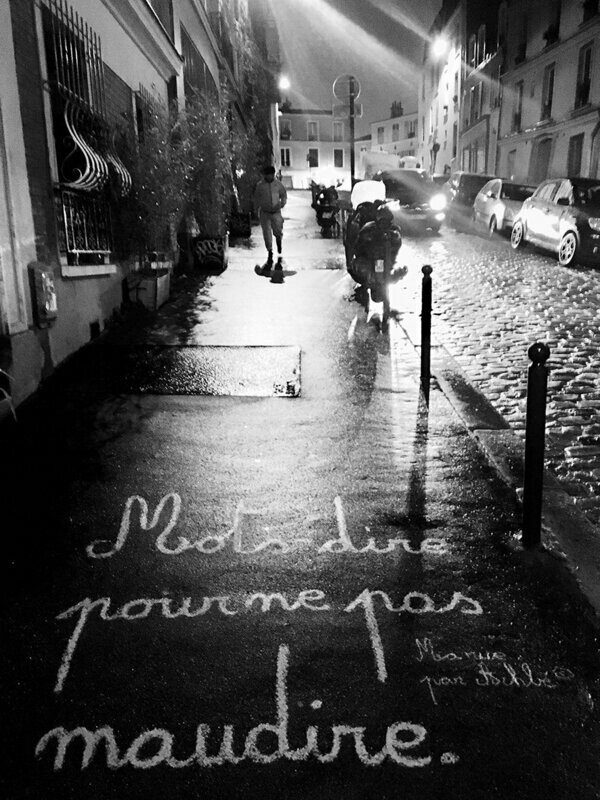 Mots-dire
pourne pas
maudire.
Ma rue
par Aschbé©